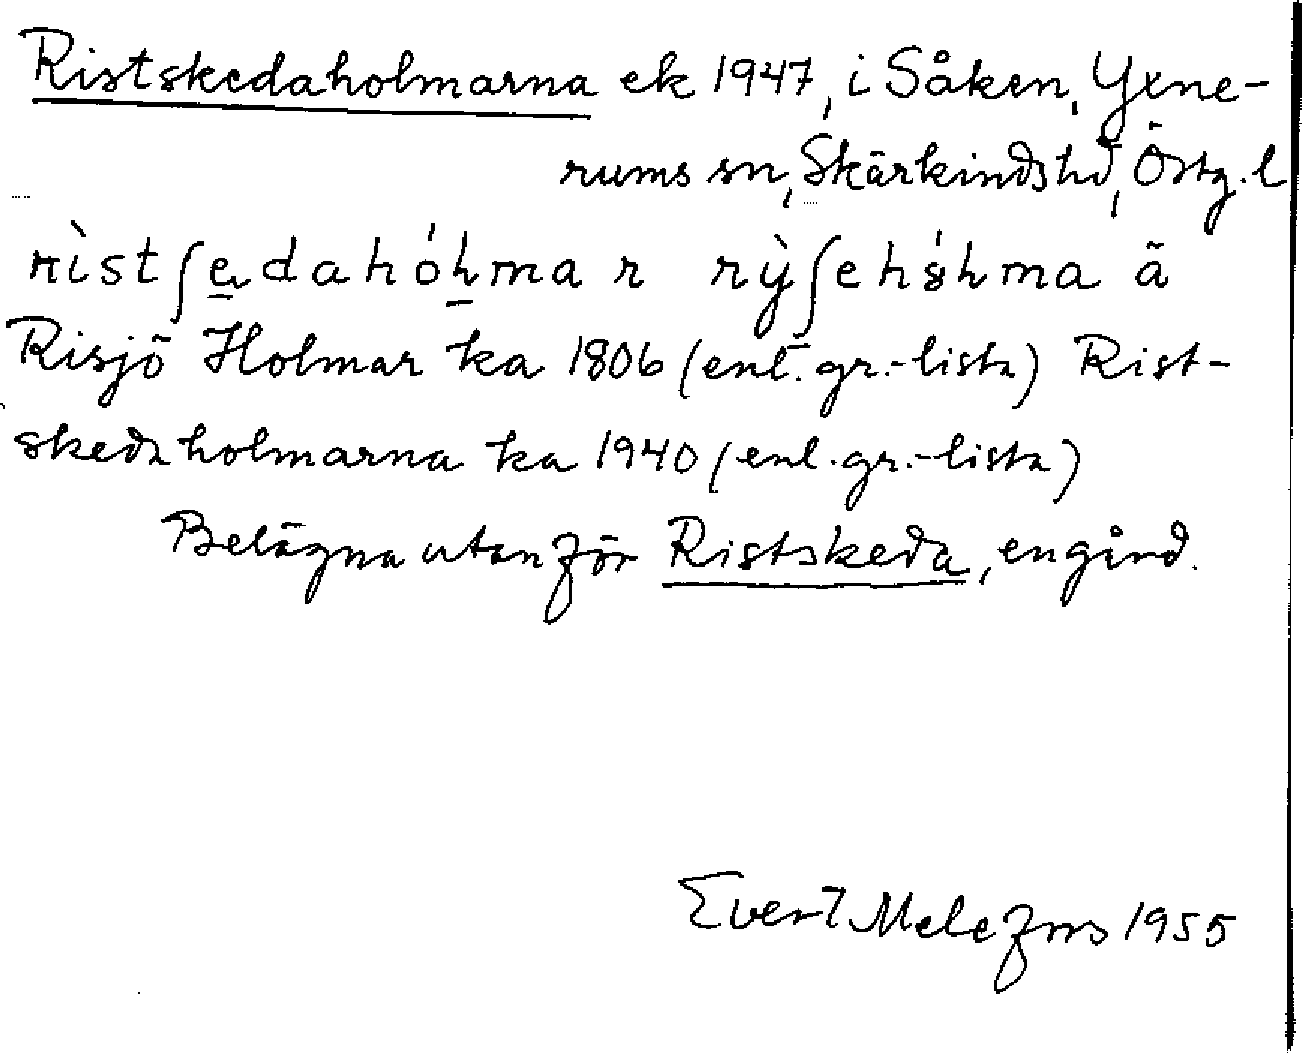 Ristskedaholmarna ek 1947, i Såken, Yxne-
rums sn, Skärkinds hd, Östg. l
Risjö Holmar ka 1806 (enl. gr.-lista) Rist-
skedaholmarna ka 1940 (enl. gr.-lista)
Belägna utanför Ristskeda, en gård.
Evert Melefors 1955